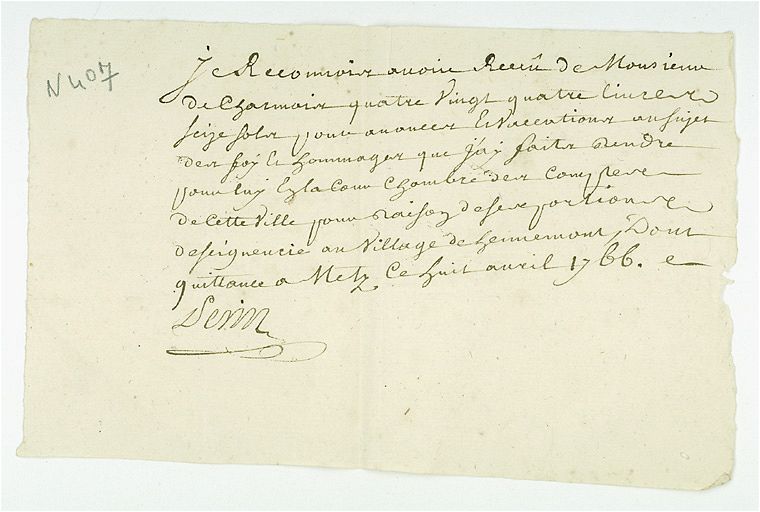 N 407
je Reconnois avoir Receu de Monsieur
de Charmois quatre vingt quatre livres
seize sols pour avances Et vaccations au sujet
des foy Et hommages que j'ay faits Rendre
pour luy En la Cour Chambre des Comptes
de Cette Ville pour Raison de ses portions
de seigneurie au Village de hennemont, Dont
quittance a Metz Ce huit avril 1766.
Perin